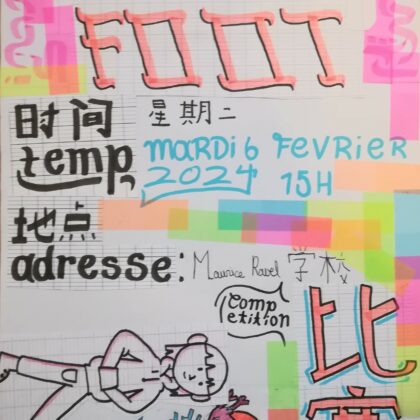 FOOT
时间 星期二
temp, MARDi 6 FEVRiER
2024 15H
地点
adresse: Maurice Ravel 学校
Comp
etition
比
赛